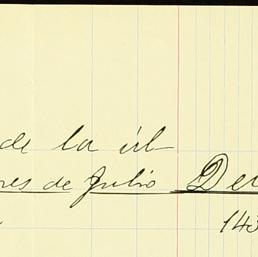 de la úl-
res de Julio De
143